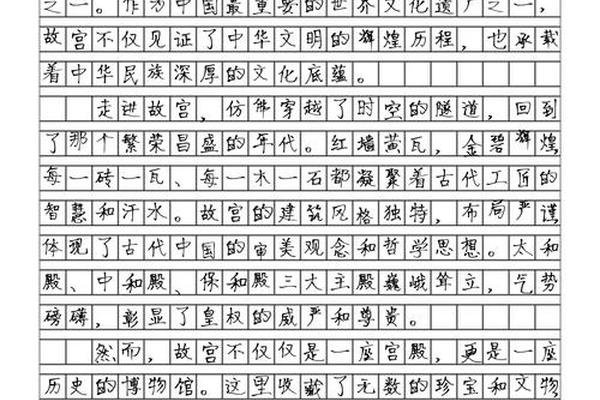 之一。作为中国最重要的世界文化遗产之一，
故宫不仅见证了中华文明的辉煌历程，也承载
着中华民族深厚的文化底蕴。
走进故宫，仿佛穿越了时空的隧道，回到
了那个繁荣昌盛的年代。红墙黄瓦，金碧辉煌
每一砖一瓦、每一木一石都凝聚着古代工匠的
智慧和汗水。故宫的建筑风格独特，布局严谨
体现了古代中国的审美观念和哲学思想。太和
殿、中和殿、保和殿三大主殿巍峨耸立，气势
磅礴，彰显了皇权的威严和尊贵。
然而，故宫不仅仅是一座宫殿，更是一座
历史的博物馆。这里收藏了无数的珍宝和文物